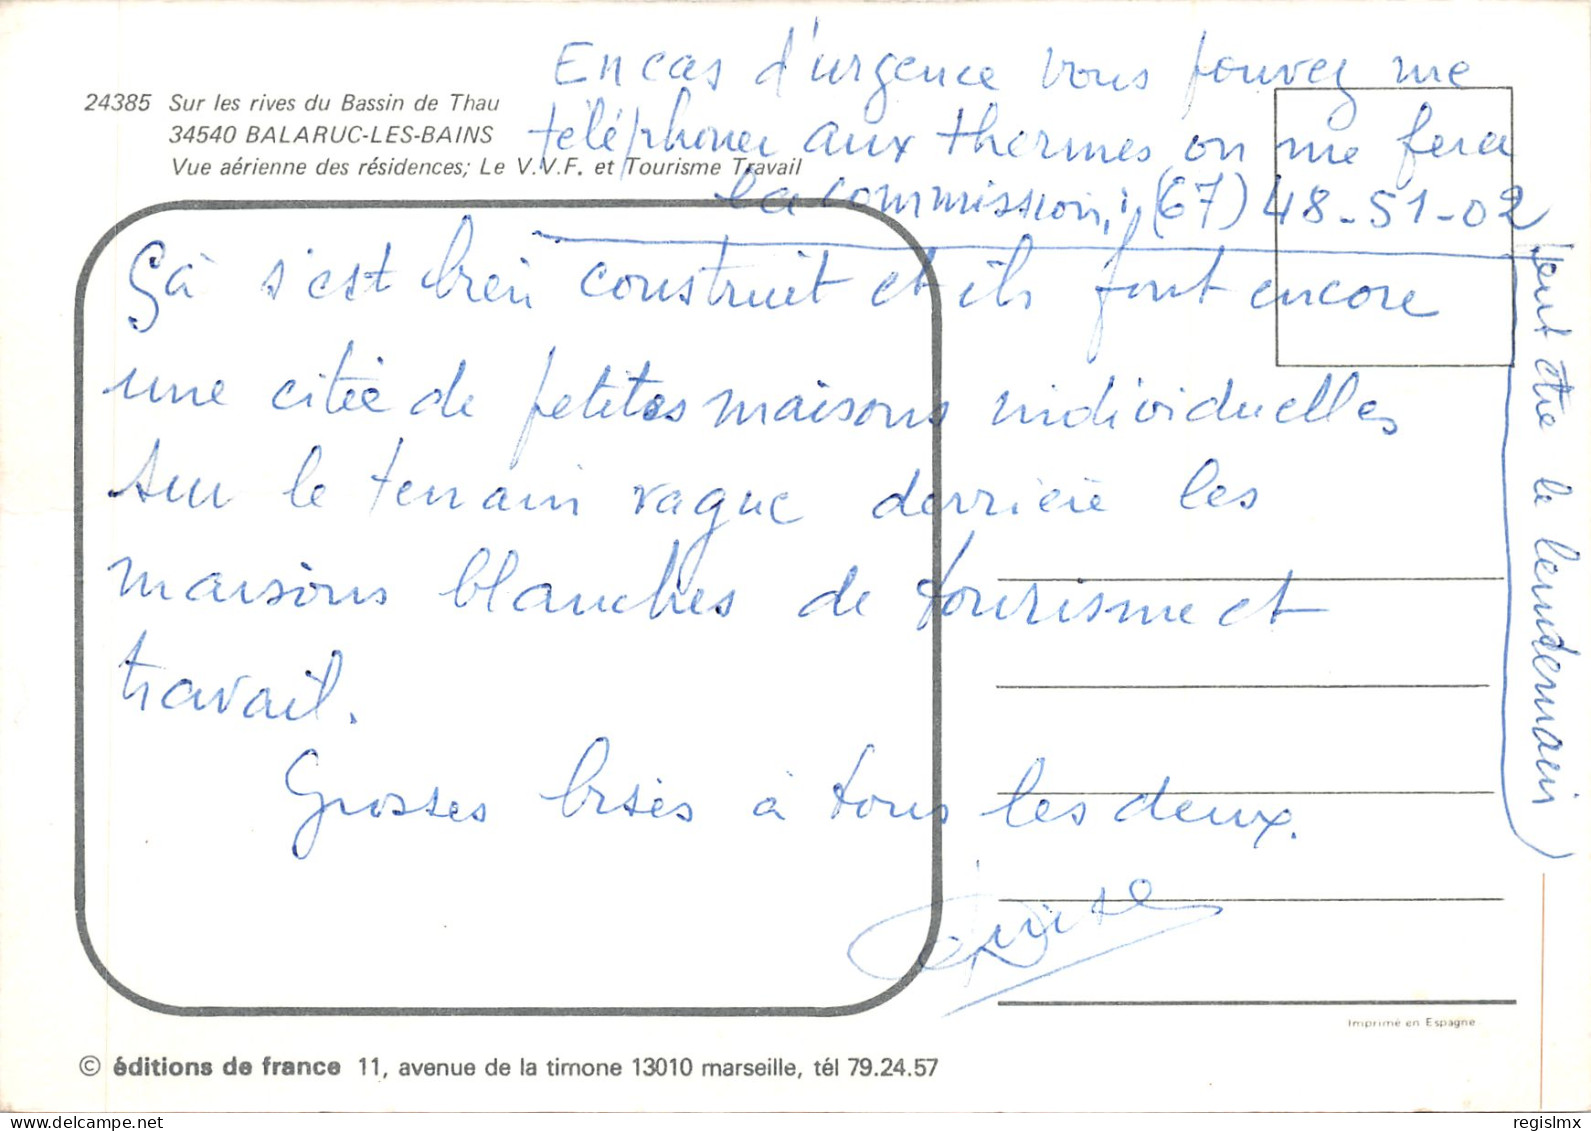 En cas d'urgence vous pouvez me
téléphoner aux thermes on me fera
la commission : (67) 48-51-02
24385 Sur les rives du Bassin de Thau
34540 BALARUC-LES-BAINS
Vue aérienne des résidences; Le V.V.F. et Tourisme Travail
Çà s'est bien construit et ils font encore
une citée de petites maisons individuelles
sur le terrain vague derrière les
maisons blanches de tourisme et
travail.
Grosses bises à tous les deux.
peut être le lendemain
Imprimé en Espagne
© éditions de france 11, avenue de la timone 13010 marseille, tél 79.24.57
regislmx